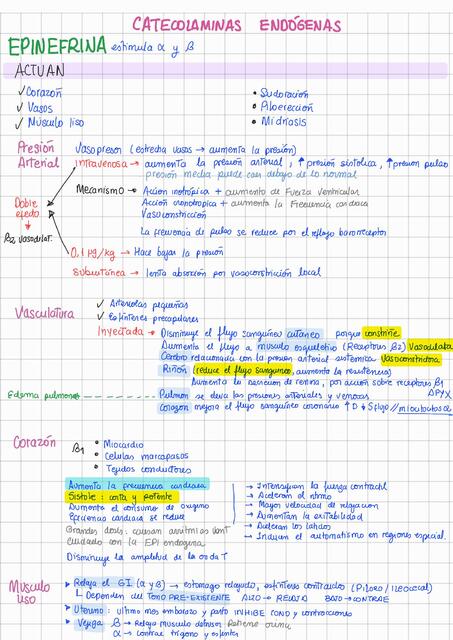 CATECOLAMINAS ENDÓGENAS
EPINEFRINA estimula α y β
ACTUAN
✓ Corazón
✓ Vasos
✓ Músculo liso
• Sudoración
• Piloerección
• Midriasis
Presión Arterial
Vasopresor (estrecha vasos → aumenta la presión)
Intravenosa → aumenta la presión arterial, ↑ presión sistólica, ↑ presion pulso
presión media puede caer debajo de lo normal
Mecanismo → Acción inotrópica + aumento de Fuerza ventricular
Acción cronotropica + aumenta la Frecuencia cardiaca
Vasoconstricción
La frecuencia de pulso se reduce por el reflejo baroreceptor
Doble efecto
β2 vasodilat.
0,1 µg/kg → Hace bajar la presión
Subcutánea → lenta absorción por vasoconstricción local
Vasculatura
✓ Arteriolas pequeñas
✓ Esfínteres precapilares
Inyectada → Disminuye el flujo sanguíneo cutáneo porque constriñe
Aumenta el flujo a musculo esquelético (Receptores β2) Vasodilata
Cerebro relacionada con la presion arterial sistemica Vasoconstridora
Riñón (reduce el flujo sanguíneo, aumenta la resistencia)
Aumenta la secrecion de renina, por acción sobre receptores β1
Edema pulmonar
Pulmon se eleva las presiones arteriales y venosas
Corazon mejora el flujo sanguíneo coronario ↑ D
Corazón
β1
• Miocardio
• Celulas marcapasos
• Tejidos conductores
Aumenta la frecuencia cardiaca
Sistole: corta y potente
Aumenta el consumo de oxigeno
Eficiencia cardiaca se reduce
Grandes dosis: causan arritmias
cuidado con la EPI endogena
Disminuye la amplitud de la onda T
→ Intensifican la fuerza contractil
→ Aceleran el ritmo
→ Mayor velocidad de relajacion
→ Aumentan la exitabilidad
→ Aceleran los latidos
→ Inducen el automatismo en regiones especial.
Musculo liso
Relaja el GI (α y β) → estomago relajado, esfinteres contraidos (Piloro / ileocecal)
Dependen del TONO PRE-EXISTENTE ALTO → RELAJA BAJO → CONTRAE
Uterino: ultimo mes embarazo y parto INHIBE TONO y contracciones
Vejiga β → Relaja musculo detrusor Retiene orina
α → contrae trigono y esfinter